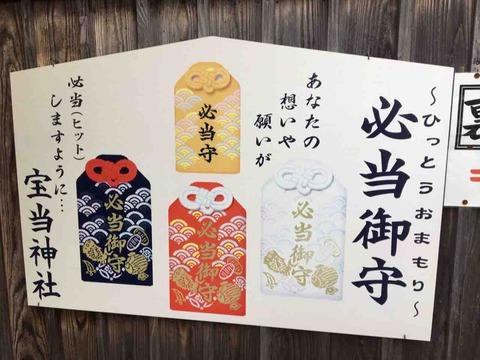 〜ひっとうおまもり〜
必当御守
あなたの
想いや
願いが
必当守
必当御守
必当御守
必当御守
必当(ヒット)
しますように…
宝当神社